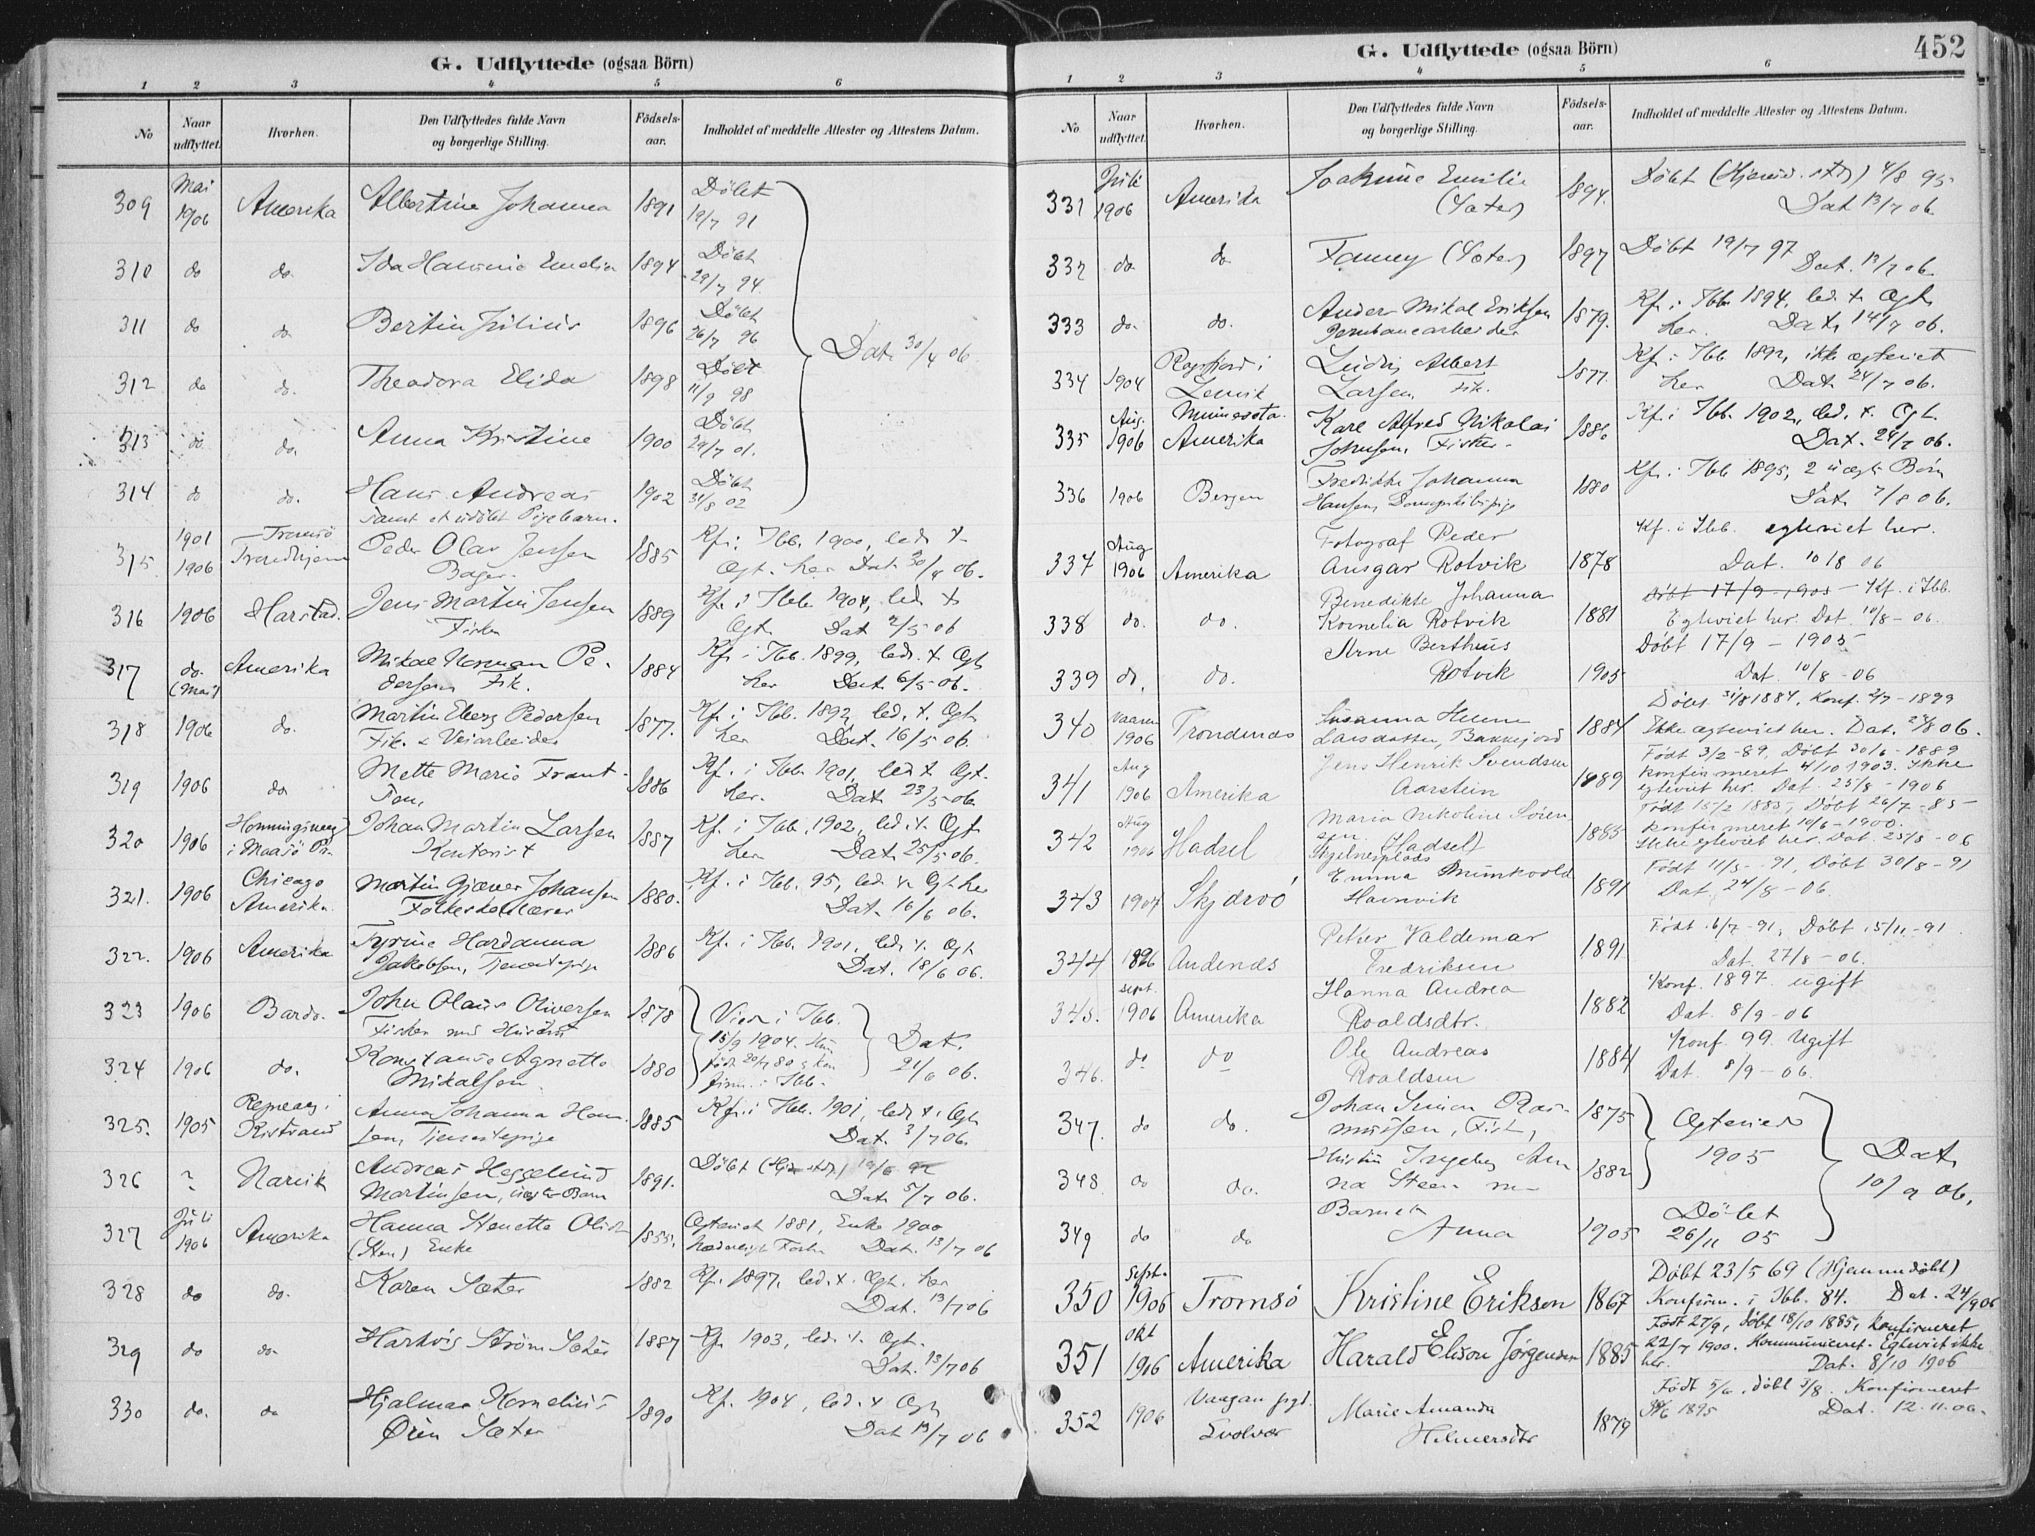 G. Udflyttede (ogsaa Börn)
1 2 3 4 5 6
No
Naar udflyttet.
Hvorhen.
Den Udflyttedes fulde Navn og borgerlige Stilling.
Födsels-aar.
Indholdet af meddelte Attester og Attestens Datum.
309 Mai 1906 Amerika Albertine Johanna 1891 Döbt 19/7 91
310 do do. Ida Emelie 1894 Döbt 29/7 94.
311 do do Bertin Julius 1896 Döbt 26/7 96
Dat. 30/4 06.
312 do do. Theodora Elida 1898 Döbt 11/9 98
313 do do. Anna Kristine 1900 Döbt 29/7 01.
314 do do. Hans Andreas 1902 Döbt 31/8 02
samt et udöbt Pigebarn.
315. 1901 Tromsö
1906 Trondhjem Peder Olav Jensen 1885 Kf. i Ibb. 1900, led. t.
Bager. Ogt. her Dat. 30/4 06.
316 1906 Harstad. Jens Martin Jensen 1889 Kf. i Ibb. 1904, led. t.
Fisker Ogt. Dat. 2/5 06
317 do. (Mai) Amerika Mikal Norman Pe- 1884 Kf. i Ibb. 1899, led. t. Ogt.
dersen Fik. her Dat. 6/5 06.
318 1906 do. Martin Eberg Pedersen 1877. Kf. i Ibb. 1892, led. t. Ogt.
Fik. & Veiarbeider her Dat. 16/5 06.
319 1906 do Mette Marie Frant- 1886 Kf. i Ibb. 1901, led t. Ogt.
her. Dat. 23/5 06.
320 1906 Honningsvaag Johan Martin Larsen 1887 Kf. i Ibb. 1902, led. t. Ogt.
i Maasö Pr. Kontorist her Dat. 25/5 06.
321. 1906 Chicago Martin Gjæver Johansen 1880. Kf. i Ibb. 95, led. t. Ogt. her
Amerika. Folkeskolelærer Dat. 16/6 06.
322. 1906 Amerika Tyrine Hardanna 1886 Kf. i Ibb. 1901, led. t. Ogt.
Jakobsen, Tjenestepige Dat. 18/6 06.
323 1906 Bardo. John Olaus Oliversen 1878 Viet i Ibb.
Fisker med Hustru 18/9 1904. Hun
324 1906 do. Konstanse Agnette 1880 født 20/7 80 & kon
Mikalsen firm. i Ibb. Dat. 21/6 06.
325. 1905 i Anna Johanna Han- 1885 Kf. i Ibb. 1901, led. t. Ogt.
sen, Tjenestepige Dat. 3/7 06.
326 ? Narvik Andreas Heggelund 1891. Döbt
Martinsen, Barn Dat. 5/7 06.
327 Juli 1906 Amerika Hanna Henette 1855. Ogteviet 1881, Enke 1900
Enke Dat. 13/7 06
328 do do. Karen Sæter 1882 Kf. 1897, led. t. Ogt. her
Dat. 13/7 06
329 do do Hartvig Ström Sæter 1887 Kf. 1903, led. t. Ogt.
Dat. 13/7 06
330 do. do Hjalmar Kornelius 1890 Kf. 1904, led. t. Ogt
Sæter Dat 13/7 06
G. Udflyttede (ogsaa Börn)
452
1 2 3 4 5 6
No
Naar udflyttet.
Hvorhen.
Den Udflyttedes fulde Navn og borgerlige Stilling.
Födsels-aar.
Indholdet af meddelte Attester og Attestens Datum.
331 Juli 1906 Amerika Joakime Emilie 1894. Döbt 4/8 95
(Sæter) Dat 13/7 06
332 do do Fanny (Sæter) 1897 Döbt 19/7 97
Dat. 13/7 06
333 do. do. Ander Mikal Eriksen 1879. Kf. i Ibb. 1894, led. t. Ogt.
Jernbanearbeider her. Dat. 14/7 06.
334 1904 i Ludvig Albert 1877. Kf. i Ibb 1892, ikke ogteviet
Lenvik Larsen, Fik. her Dat. 24/7 06.
335 Aug. 1906 Minnesota. Karl Alfred Nikolai 1886 Kf. i Ibb. 1902, led. t. Ogt.
Amerika Johnsen, Fisker. Dat. 24/7 06.
336 1906 Bergen Fredrikke Johanna 1880 Kf. i Ibb 1895, 2 uægte Börn
Hansen, Dat. 7/8 06.
337 Aug 1906 Amerika Fotograf Peder 1878 Kf. i Ibb. egteviet her.
Ansgar Rotvik Dat. 10/8 06
338 do. do. Benedikte Johanna 1881 Döbt 17/9-1905 Kf. i Ibb.
Kornelia Rotvik Egteviet her. Dat. 10/8-06.
339 do. do. Arne Berthius 1905 Döbt 17/9 - 1905
Rotvik Dat. 10/8-06
340 Vaaren 1906 Trondenæs Susanna Helene 1884 Döbt 31/8 1884, Konf. 2/7-1899
Larsdatter, Ikke egteviet her. Dat. 24/8 06.
341 Aug 1906 Amerika Jens Henrik Svendsen 1889 Født 3/2-89, Döbt 30/6-1889
Aarstein konfirmeret 4/10 1903. Ikke
egteviet her. Dat. 25/8-1906
342 Aug 1906 Hadsel Maria Nikoline Sören- 1885 Født 15/2 1885, Döbt 26/7-85
sen (Hadsel) konfirmeret 10/6-1900.
Ikke egteviet her. Dat. 25/8-06
343 1904 Skjærvö Emma 1891 Født 11/5-91, Döbt 30/8-91
Hamnvik Dat. 24/8-06.
344 1896 Andenæs Peter Valdemar 1891 Født 6/7-91, Döbt 15/11-91
Fredriksen Dat. 27/8-06.
345. Sept. 1906 Amerika Hanna Andrea 1882 Konf. 1897. ugift
Roaldsdtr. Dat. 8/9-06
346. do do Ole Andreas 1884 Konf. 99. Ugift
Roaldsen Dat. 8/9-06.
347. do do. Johan Simon Ras- 1875 Ogteviet
mussen, Fisk, 1905
348 do do. 1882 Dat.
10/9 06.
349 do do Barnet 1905 Döbt
Anna 26/11 05
350 Sept. 1906 Tromsö Kristine Eriksen 1867 Døbt 23/5 69 (Hjemmedøbt)
Konfirm. i Ibb. 84. Dat. 24/9 06
351 Okt 1906 Amerika Harald Elison Jørgensen 1885 Født 27/9, døbt 18/10 1885, konfirmeret
22/7 1900. Kommuniceret. Egteviet ikke
her. Dat. 8/10 1906
352 1906 Vaagan prgd. Marie Amanda 1879 Født 5/6, døbt 3/8. Konfirmeret
Svolvær Hilmersdtr 1895 Dat. 12.11.06.